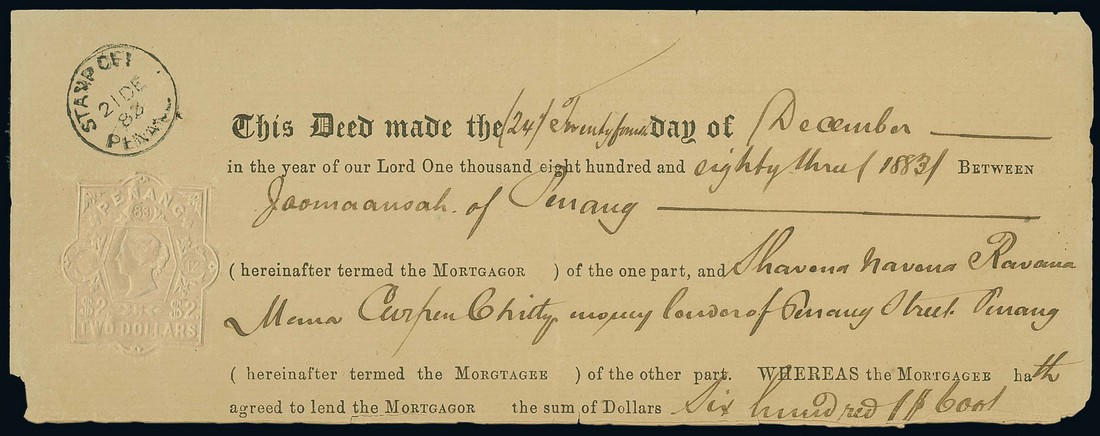 STAMP OFF
21 DE
83
PENANG
PENANG
83
$2 $2
TWO DOLLARS
This Deed made the (24) Twenty fourth day of December
in the year of our Lord One thousand eight hundred and eighty three (1883) BETWEEN
Joomaansah of Penang
( hereinafter termed the MORTGAGOR ) of the one part, and Shavena Navena Ravana
Mena Curpen Chitty money lender of Penang Street Penang
( hereinafter termed the MORGTAGEE ) of the other part. WHEREAS the MORTGAGEE hath
agreed to lend the MORTGAGOR the sum of Dollars Six hundred ($600)